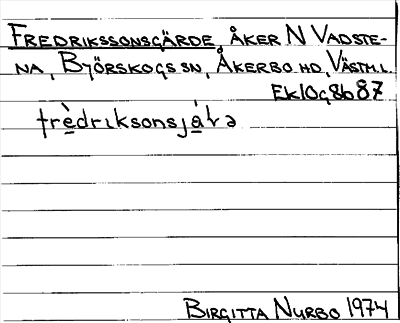 FREDRIKSSONSGÄRDE, ÅKER N VADSTE-
NA, BJÖRSKOGS SN, ÅKERBO HD, VÄSTM.L.
EK10g8b87
frèdriksonsjáṛə
BIRGITTA NURBO 1974